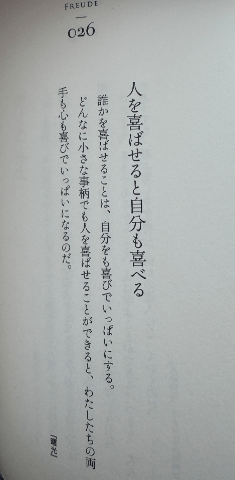 FREUDE
026
人を喜ばせると自分も喜べる
誰かを喜ばせることは、自分をも喜びでいっぱいにする。
どんなに小さな事柄でも人を喜ばせることができると、わたしたちの両
手も心も喜びでいっぱいになるのだ。
『曙光』